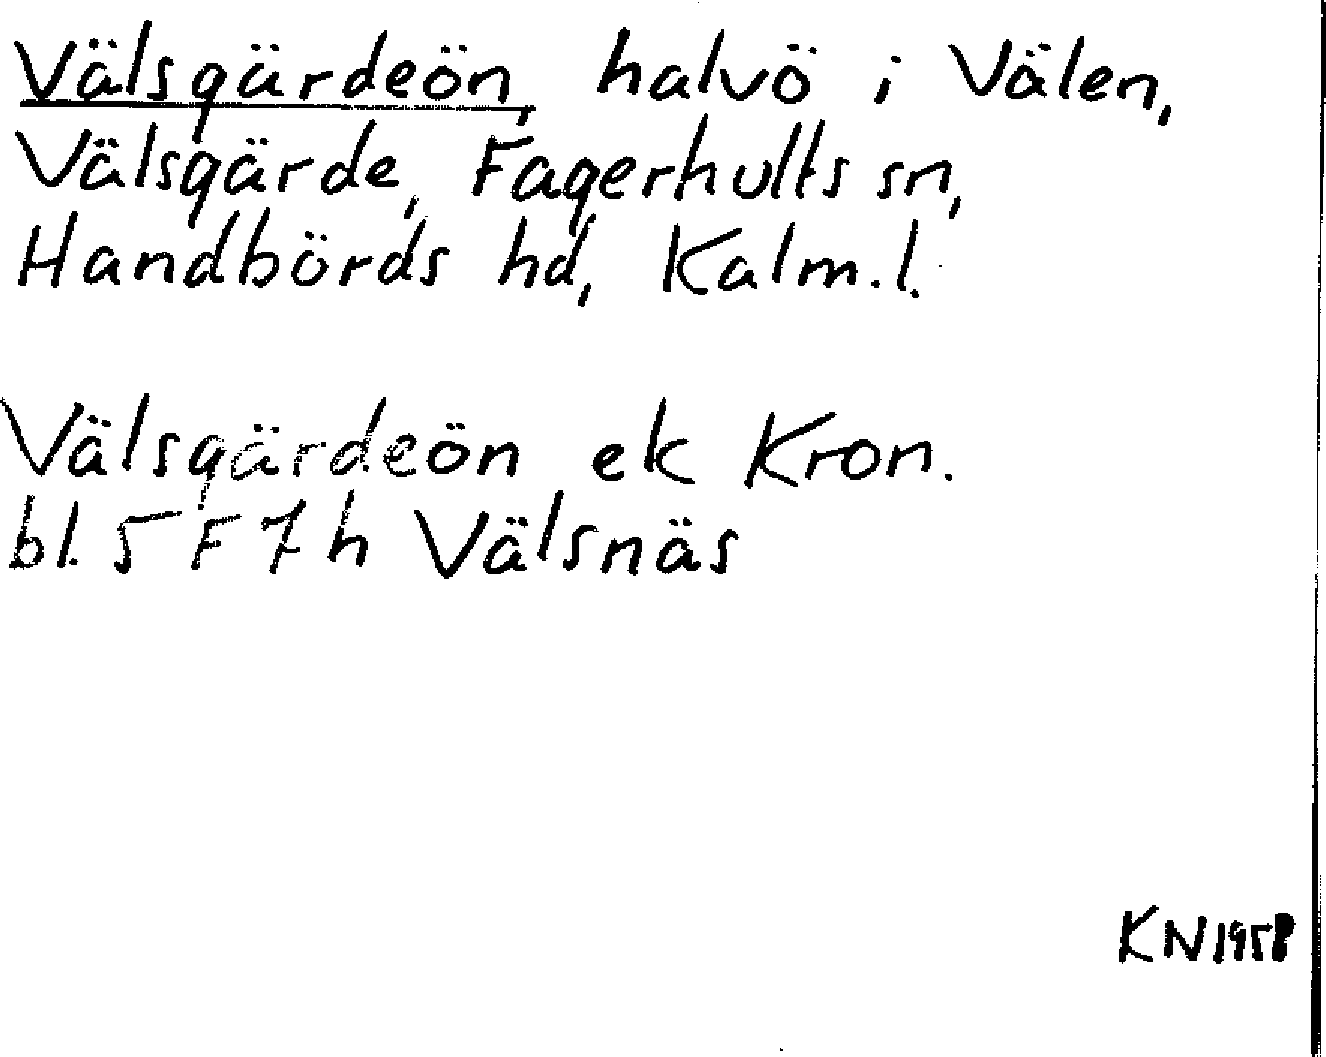 Välsgärdeön, halvö i Välen,
Välsgärde, Fagerhults sn,
Handbörds hd, Kalm. l.
Välsgärdeön ek Kron.
bl. 5 F 7 h Välsnäs
KN 1958